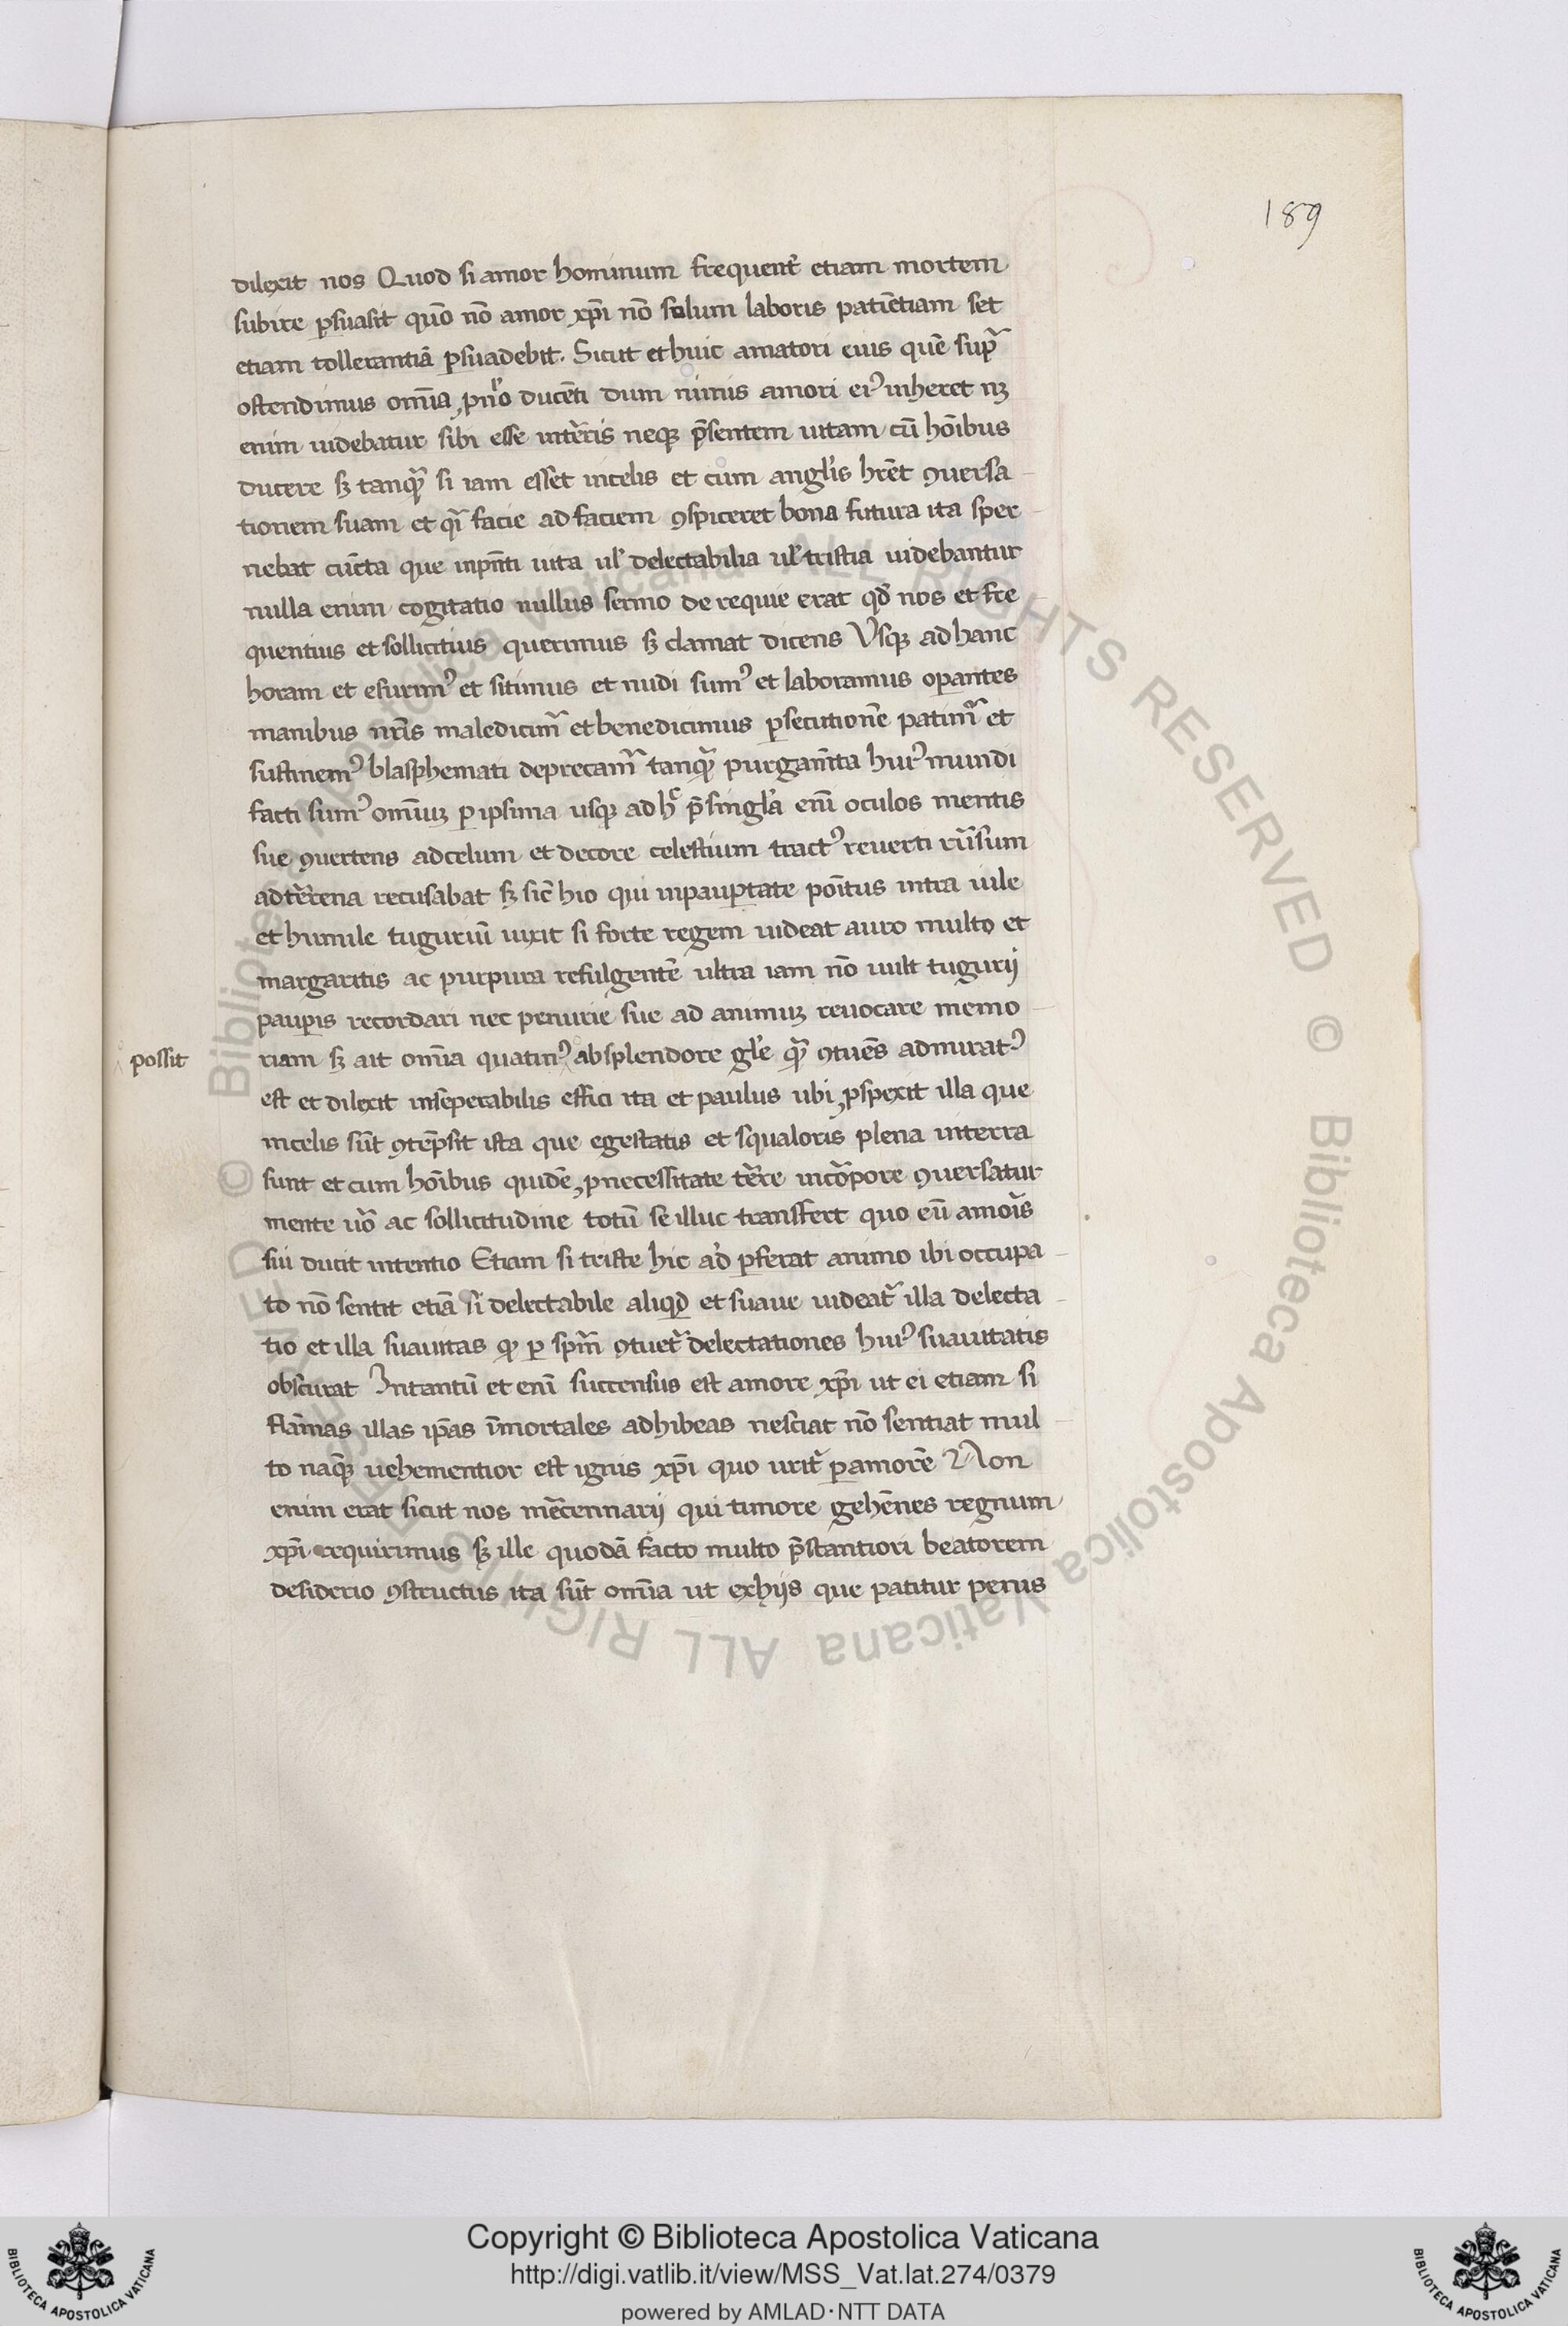 189
dilexit nos Quod si amor hominum frequent͛ etiam mortem
subire ꝑsuasit quō nō amor xp̄i nō solum laboris patiētiam set
etiam tollerantiā ꝑsuadebit. Sicut et huic amatori eius quē supᷓ
ostendimus om̄ia dum nimis amori eiꝰ inheret
enim uidebatur sibi esse int͛ris neqꝫ p̄sentem uitam cū hōibus
ducere sꝫ tanqᷓ si iam esset incelis et cum angl̓is hr̄et ꝯuersa
tionem suam et qᷓi facie ad faciem ꝯspiceret bona futura ita sper
nebat cūcta que inpn̄ti uita ul̓ delectabilia ul̓ tristia uidebantur
nulla enim cogitatio nullus sermo de requie erat qd̓ nos et fre
quentius et sollicitius querimus sꝫ clamat dicens Vsqꝫ ad hanc
horam et esurimꝰ et sitimus et nudi sumꝰ et laboramus operantes
manibus nr̄is maledicimᷓ et benedicimus ꝑsecutionē patimᷓ et
sustinemꝰ blasphemati deprecamᷓ tanqᷓ purgam̄ta huiꝰ mundi
facti sumꝰ omīuꝫ ꝑipsima usqꝫ adhͨ p̄singl̓a enī oculos mentis
sue ꝯuertens adcelum et decore celestium tractꝰ reuerti rūsum
adt͛rena recusabat sꝫ sic̄ hio qui inpauꝑtate poītus intra uile
et humile tuguriū uixit si forte regem uideat auro multo et
margaritis ac purpura refulgentē ultra iam nō uult tugurij
pauꝑis recordari nec penurie sue ad animuꝫ reuocare memo
possit
riam sꝫ ait om̄ia quatinꝰ absplendore gl̓e qᷓ ꝯtuēs admiratꝰ
est et dilexit inseperabilis effici ita et paulus ubi ꝓspexit illa que
incelis sūt ꝯtēpsit ista que egestatis et squaloris plena interra
sunt et cum hōibus quidē ꝓnecessitate t͛re incorpore ꝯuersatur
mente uͦo ac sollicitudine totū se illuc transfert quo eū amoīs
sui ducit intentio Etiam si triste hic ad̓ ꝑferat animo ibi occupa
to nō sentit etiā si delectabile aliqd̓ et suaue uideatᷓ illa delecta
tio et illa suauitas qͥ ꝑ spm̄ ꝯtuetᷓ delectationes huiꝰ suauitatis
obscurat Intantū et enī succensus est amore xp̄i ut ei etiam si
flām̄as illas ip̄as īmortales adhibeas nesciat nō sentiat mul
to naqꝫ uehementior est ignis xp̄i quo uritᷓ ꝑamorē Non
enim erat sicut nos m͛cennarij qui timore gehēnes regnum
xp̄i requirimus sꝫ ille quodā facto multo p̄stantiori beatorem
desiderio ꝯstructus ita sūt om̄ia ut exhijs que patitur perus
Copyright © Biblioteca Apostolica Vaticana
http://digi.vatlib.it/view/MSS_Vat.lat.274/0379
powered by AMLAD·NTT DATA
BIBLIOTECA APOSTOLICA VATICANA
BIBLIOTECA APOSTOLICA VATICANA
© Biblioteca Apostolica Vaticana ALL RIGHTS RESERVED © Biblioteca Apostolica Vaticana ALL RIGHTS RESERVED